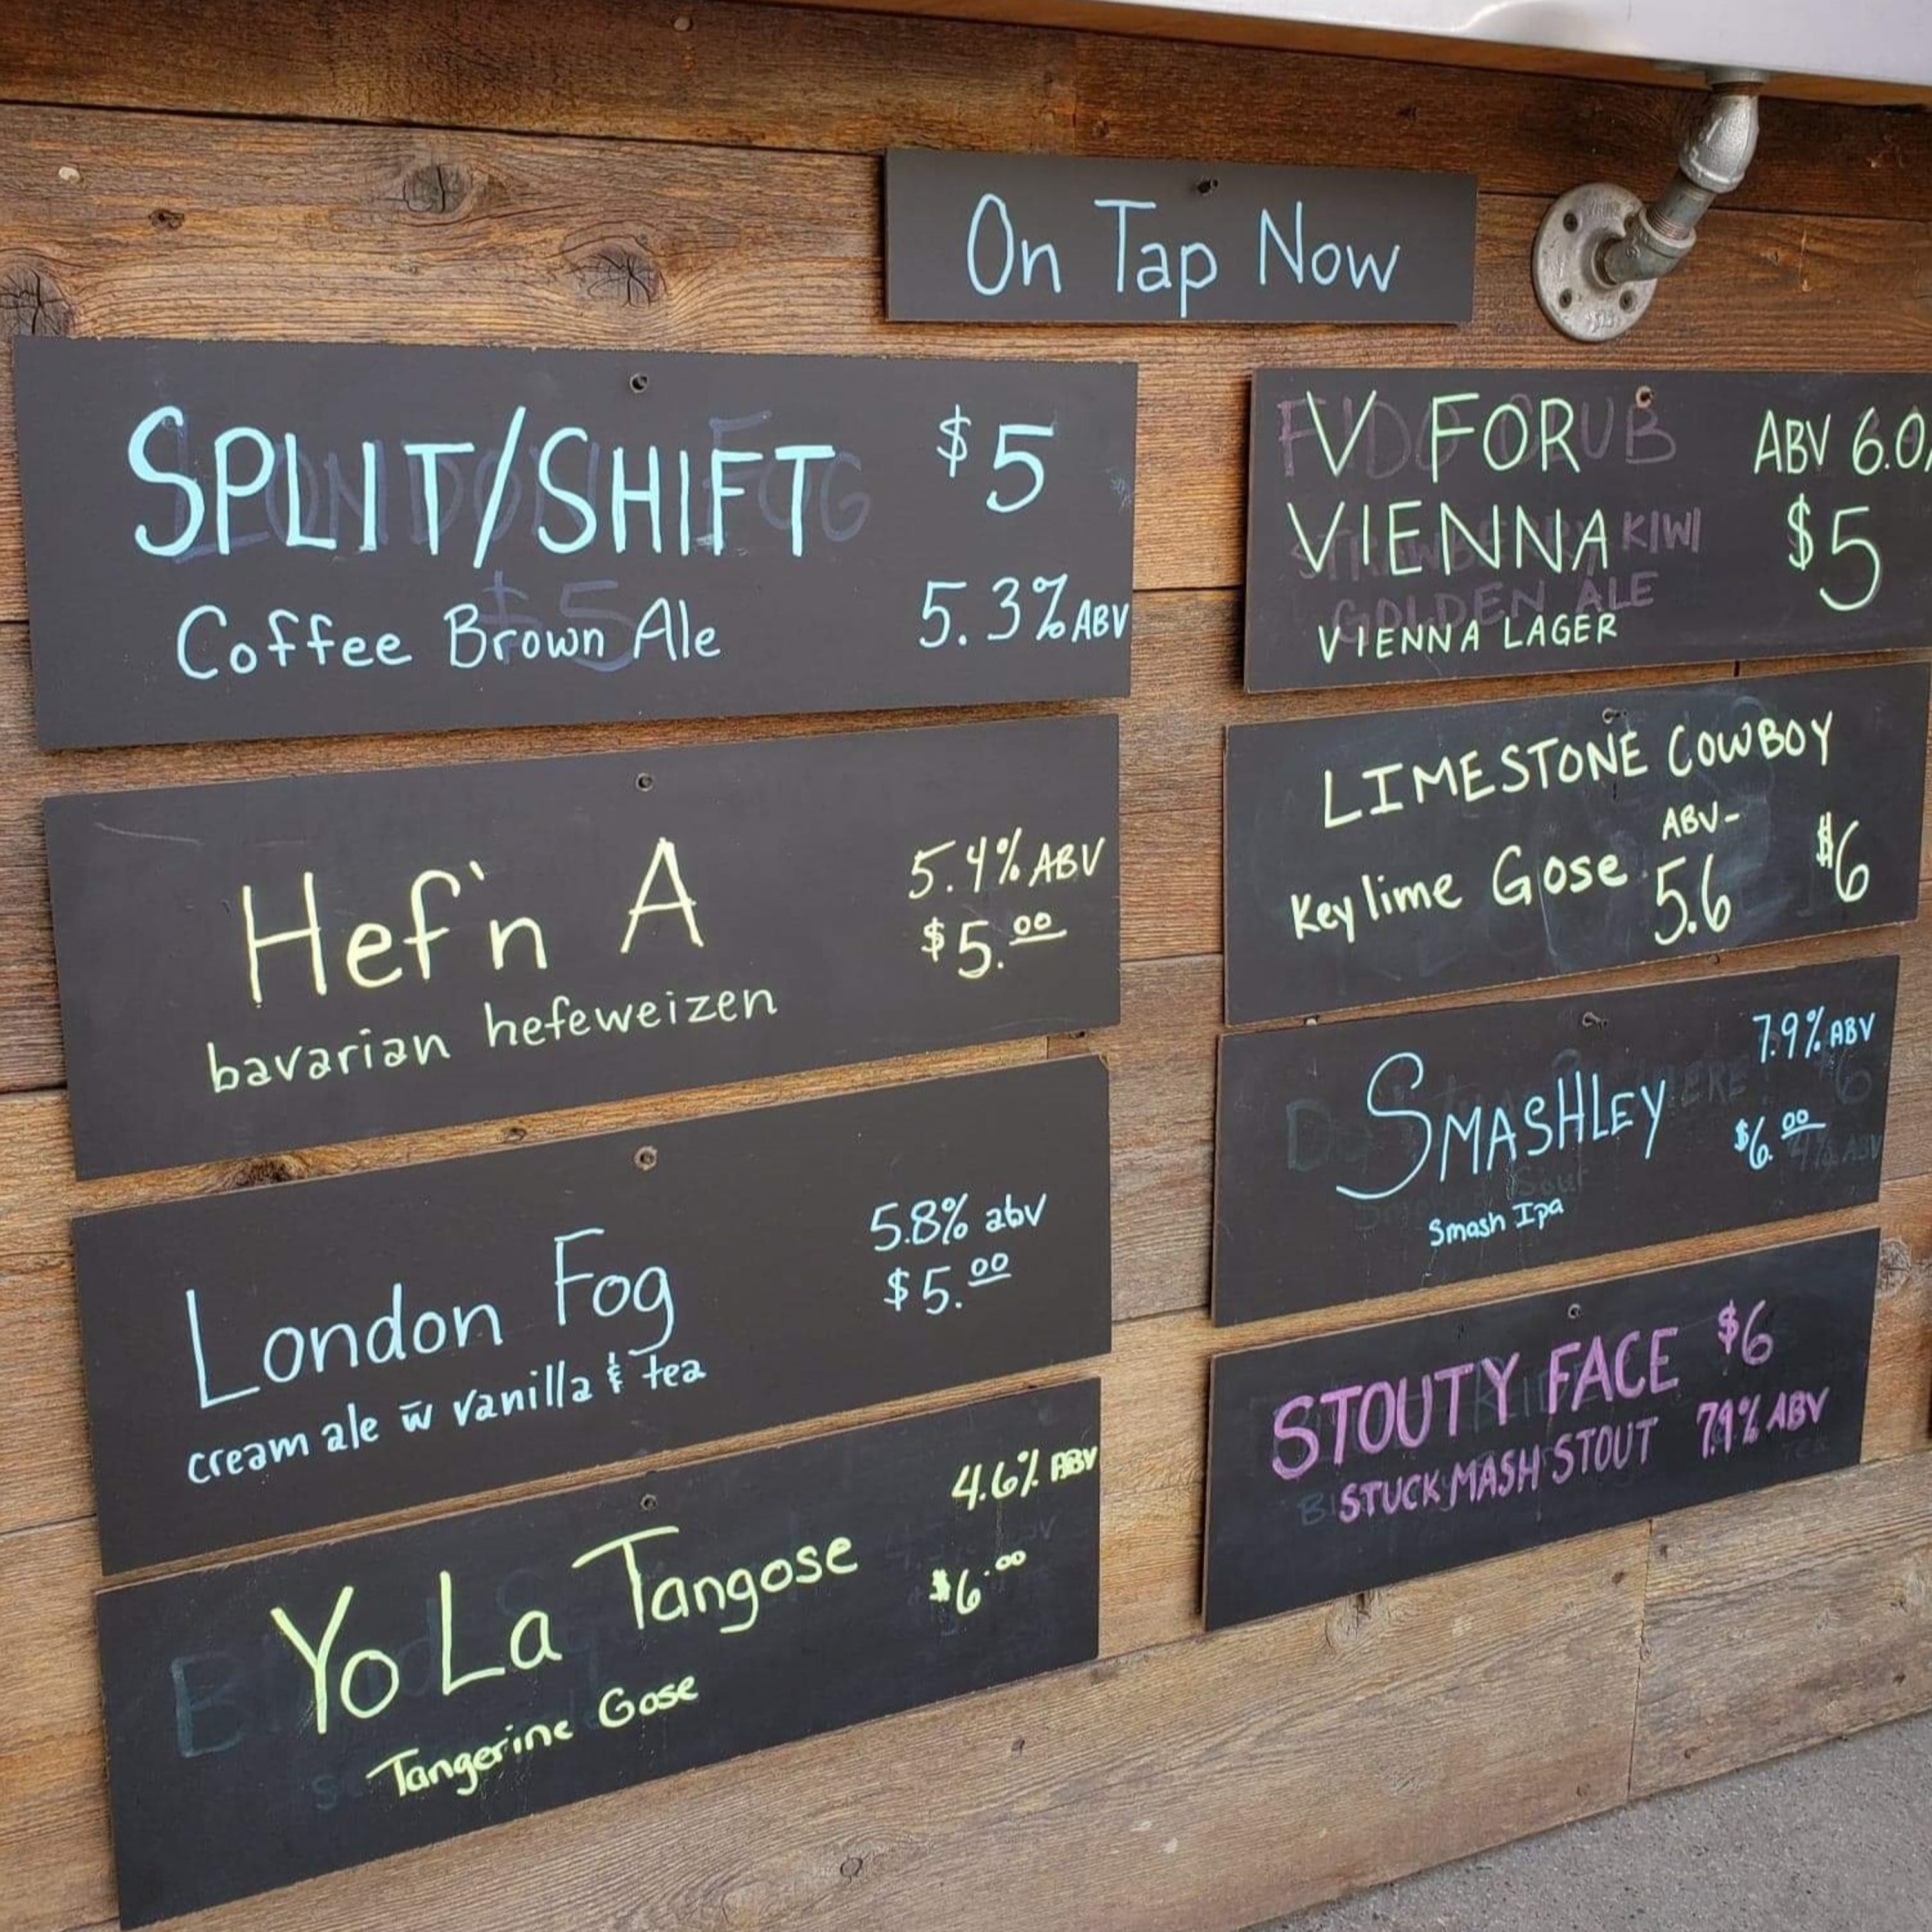 On Tap Now
SPLIT/SHIFT $5
Coffee Brown Ale 5.3% ABV
Hef'n A 5.4% ABV
$5.00
bavarian hefeweizen
London Fog 5.8% abv
$5.00
cream ale w vanilla & tea
Yo La Tangose 4.6% ABV
$6.00
Tangerine Gose
V FOR ABV 6.0%
VIENNA $5
VIENNA LAGER
LIMESTONE COWBOY
Key lime Gose ABV- 5.6 $6
SMASHLEY 7.9% ABV
$6.00
Smash Ipa
STOUTY FACE $6
STUCK MASH STOUT 7.9% ABV